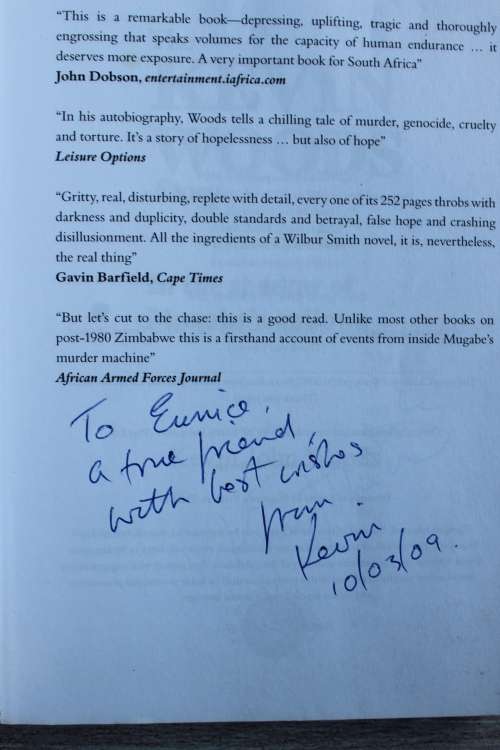 “This is a remarkable book—depressing, uplifting, tragic and thoroughly
engrossing that speaks volumes for the capacity of human endurance … it
deserves more exposure. A very important book for South Africa”
John Dobson, entertainment.iafrica.com
“In his autobiography, Woods tells a chilling tale of murder, genocide, cruelty
and torture. It’s a story of hopelessness … but also of hope”
Leisure Options
“Gritty, real, disturbing, replete with detail, every one of its 252 pages throbs with
darkness and duplicity, double standards and betrayal, false hope and crashing
disillusionment. All the ingredients of a Wilbur Smith novel, it is, nevertheless,
the real thing”
Gavin Barfield, Cape Times
“But let’s cut to the chase: this is a good read. Unlike most other books on
post-1980 Zimbabwe this is a firsthand account of events from inside Mugabe’s
murder machine”
African Armed Forces Journal
To Eunice,
a true friend,
with best wishes
from
Kevin
10/03/09.